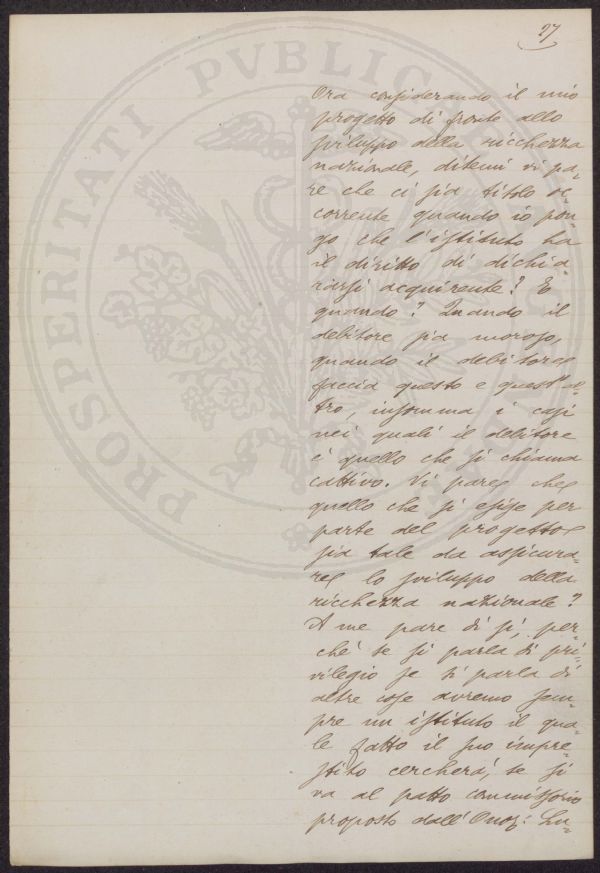 27
Ora considerando il mio
progetto di fronte allo
sviluppo della ricchezza
nazionale, ditemi vi pa-
re che ci sia titolo oc-
corrente quando io pon-
go che l'istituto ha
il diritto di dichia-
rarsi acquirente? E
quando? Quando il
debitore sia moroso,
quando il debitore
faccia questo e quest'al-
tro, insomma i casi
nei quali il debitore
è quello che si chiama
cattivo. Vi pare che
quello che si esige per
parte del progetto
sia tale da assicura-
re lo sviluppo della
ricchezza nazionale?
A me pare di sì, per-
ché se si parla di pri-
vilegio se si parla di
altre cose avremo sem-
pre un istituto il qua-
le fatto il suo impre-
stito cercherà, se si
va al patto commissorio
proposto dall'Onor: Lu-
PROSPERITATI PVBLICAE